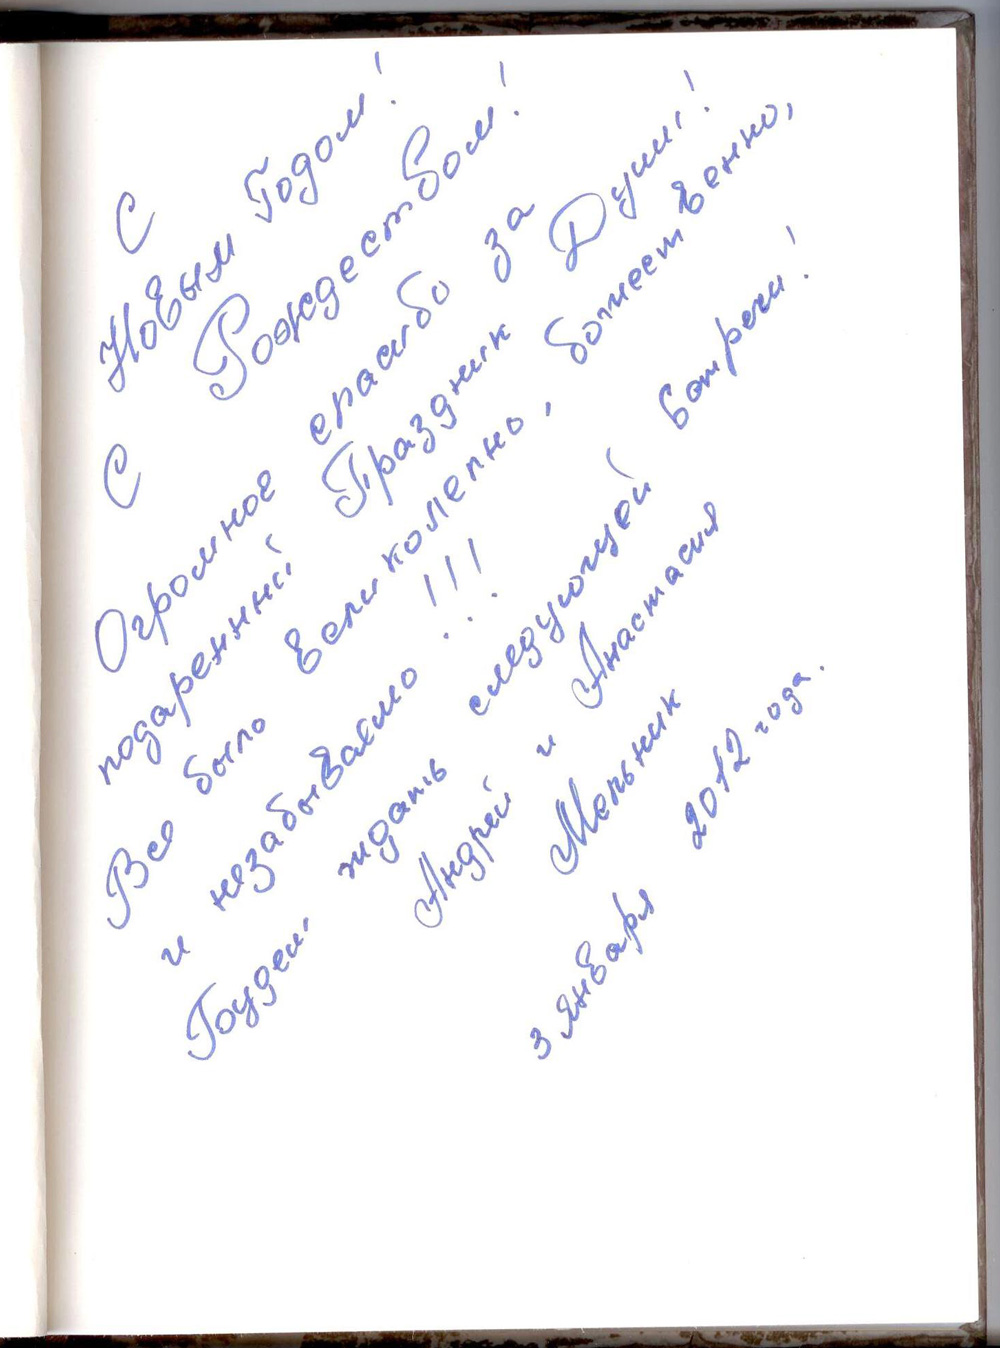 С Новым Годом!
С Рождеством!
Огромное спасибо за
подаренный Праздник Души!
Все было великолепно, божественно,
и незабываемо!!!
Будем ждать следующей встречи!
Андрей и Анастасия
Мельник
3 января 2012 года.